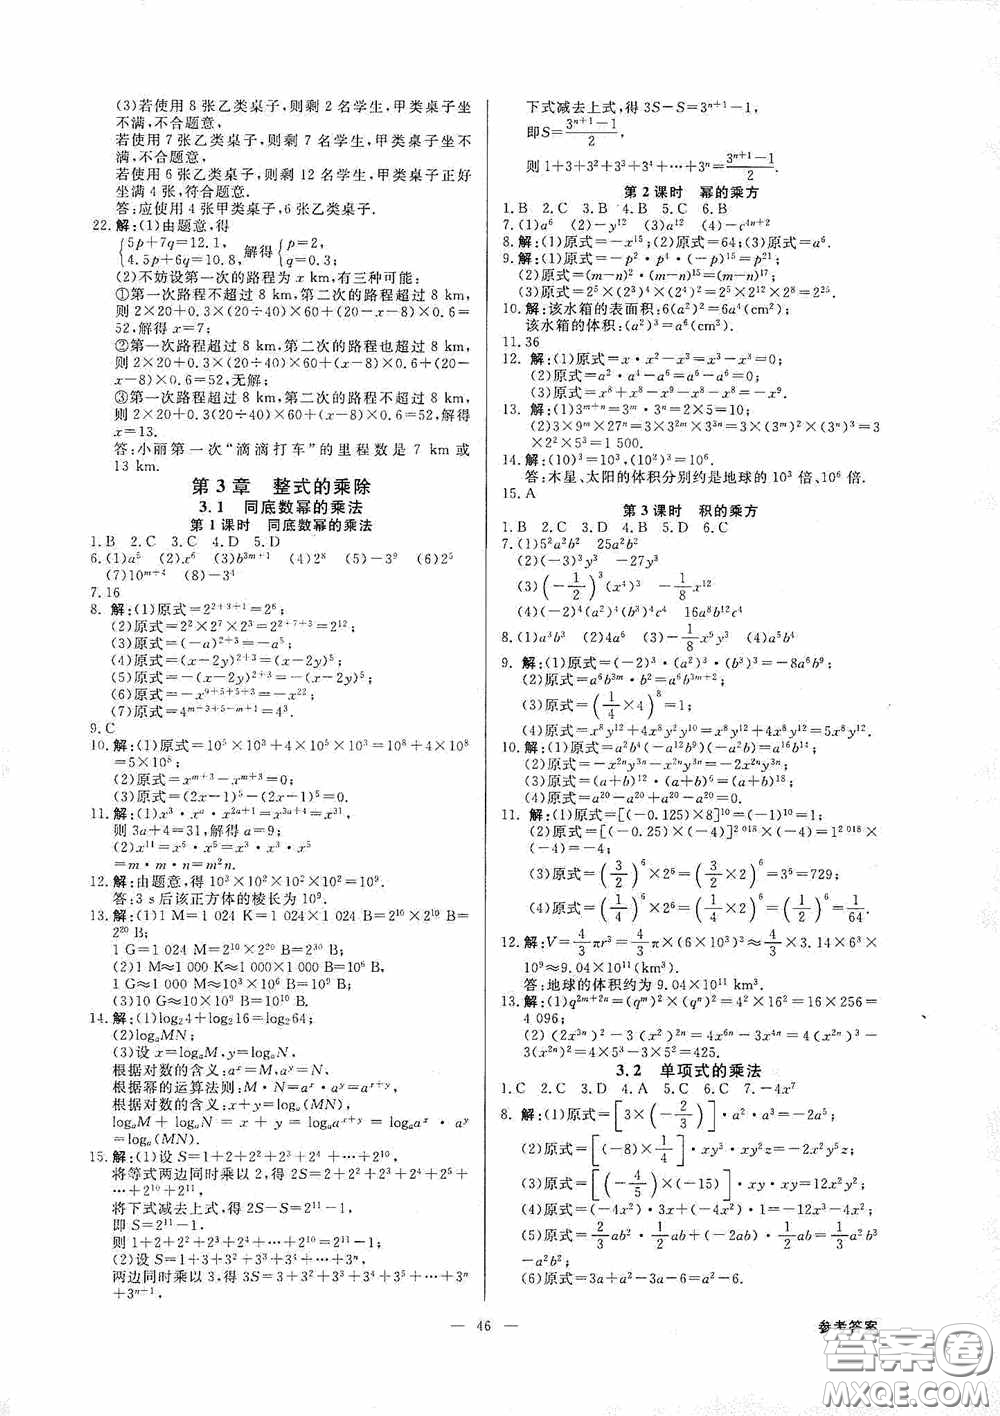 (3)若使用 8 张乙类桌子,则剩 2 名学生,甲类桌子坐
不满,不合题意,
若使用 7 张乙类桌子,则剩 7 名学生,甲类桌子坐不
满,不合题意,
若使用 6 张乙类桌子,则剩 12 名学生,甲类桌子正好
坐满 4 张,符合题意.
答:应使用 4 张甲类桌子,6 张乙类桌子.
22.解:(1)由题意,得
{5p+7q=12.1, 4.5p+6q=10.8, 解得{p=2, q=0.3;
(2)不妨设第一次的路程为 x km,有三种可能:
①第一次路程不超过 8 km,第二次的路程超过 8 km,
则 2×20+0.3×(20÷40)×60+(22-x-8)×0.6=
52,解得 x=7;
②第一次路程超过 8 km,第二次的路程也超过 8 km,
则 2×20+0.3×(20÷40)×60+(x-8)×0.6+(20
-x-8)×0.6=52,无解;
③第一次路程超过 8 km,第二次的路程不超过 8 km,
则 2×20+0.3×(20÷40)×60+(x-8)×0.6=52,解得
x=13.
答:小丽第一次“滴滴打车”的里程数是 7 km 或
13 km.
第 3 章 整式的乘除
3.1 同底数幂的乘法
第 1 课时 同底数幂的乘法
1.B 2.C 3.C 4.D 5.D
6.(1)a⁵ (2)x⁶ (3)b³ᵐ⁺¹ (4)2⁸ (5)-3⁹ (6)2⁵
(7)10ᵐ⁺⁴ (8)-3⁴
7.16
8.解:(1)原式=2²⁺³⁺¹=2⁶;
(2)原式=2²×2⁷×2³=2²⁺⁷⁺³=2¹²;
(3)原式=(-a)²⁺³=-a⁵;
(4)原式=(x-2y)²⁺³=(x-2y)⁵;
(5)原式=-(x-2y)²⁺³=-(x-2y)⁵;
(6)原式=-x⁹⁺⁵⁺⁵⁺³=-x²²;
(7)原式=4ᵐ⁻³⁺⁵⁻ᵐ=4².
9.C
10.解:(1)原式=10⁵×10³+4×10⁵×10³=10⁸+4×10⁸
=5×10⁸;
(2)原式=xᵐ⁺³-xᵐ⁺³=0;
(3)原式=(2x-1)⁵-(2x-1)⁵=0.
11.解:(1)x³·xᵃ·x²ᵃ⁺¹=x³ᵃ⁺⁴=x³¹,
则 3a+4=31,解得 a=9;
(2)x¹¹=x⁶·x⁵=x³·x³·x⁵
=m·m·n=m²n.
12.解:由题意,得 10³×10²×10²×10²=10⁹.
答:3 s后该正方体的棱长为 10⁹.
13.解:(1)1 M=1 024 K=1 024×1 024 B=2¹⁰×2¹⁰ B=
2²⁰ B,
1 G=1 024 M=2¹⁰×2²⁰ B=2³⁰ B;
(2)1 M≈1 000 K≈1 000×1 000 B=10⁶ B,
1 G≈1 000 M≈10³×10⁶ B=10⁹ B;
(3)10 G≈10×10⁹ B=10¹⁰ B.
14.解:(1)log₂4+log₂16=log₂64;
(2)logₐMN;
(3)设 x=logₐM,y=logₐN,
根据对数的含义:aˣ=M,aʸ=N,
根据幂的运算法则:MN=aˣ·aʸ=aˣ⁺ʸ,
根据对数的含义:x+y=logₐ(MN),
logₐM + logₐN = x + y = logₐaˣ⁺ʸ = logₐaˣ·aʸ=
logₐ(MN).
15.解:(1)设 S=1+2+2²+2³+2⁴+…+2¹⁰,
将等式两边同时乘以 2,得 2S=2+2²+2³+2⁴+2⁵+
…+2¹⁰+2¹¹,
将下式减去上式,得 2S-S=2¹¹-1,
即 S=2¹¹-1,
则 1+2+2²+2³+2⁴+…+2¹⁰=2¹¹-1;
(2)设 S=1+3+3²+3³+3⁴+…+3ⁿ,
两边同时乘以 3,得 3S=3+3²+3³+3⁴+3⁵+…+3ⁿ
+3ⁿ⁺¹,
下式减去上式,得 3S-S=3ⁿ⁺¹-1,
即S=(3ⁿ⁺¹-1)/2,
则 1+3+3²+3³+3⁴+…+3ⁿ=(3ⁿ⁺¹-1)/2.
第 2 课时 幂的乘方
1.B 2.C 3.B 4.B 5.C 6.B
7.(1)a⁶ (2)-y¹² (3)a¹² (4)-c⁴ⁿ⁺²
8.解:(1)原式=-x¹⁵;(2)原式=64;(3)原式=a⁶.
9.解:(1)原式=-p²·p⁴·(-p)¹⁵=p²¹;
(2)原式=(m-n)²·(m-n)¹⁵=(m-n)¹⁷;
(3)原式=2⁵×(2³)⁴×(2⁴)²=2⁵×2¹²×2⁸=2²⁵.
10.解:该水箱的表面积:6(a²)²=6a⁴(cm²);
该水箱的体积:(a²)³=a⁶(cm³).
11.36
12.解:(1)原式=x·x²-x³=x³-x³=0;
(2)原式=a²·a⁴-a⁶=a⁶-a⁶=0;
(3)原式=x⁸+x⁸-x⁸-x⁸-x⁸=-x⁸.
13.解:(1)3ᵐ⁺ⁿ=3ᵐ·3ⁿ=2×5=10;
(2)3×9ᵐ×27ⁿ=3×3²ᵐ×3³ⁿ=3×(3ᵐ)²×(3ⁿ)³=3
×2²×5³=1 500.
14.解:(10)³=10³,(10²)³=10⁶.
答:木星、太阳的体积分别约是地球的 10³ 倍、10⁶ 倍.
15.A
第 3 课时 积的乘方
1.B 2.C 3.D 4.B 5.D 6.C
7.(1)5²a²b² 25a²b²
(2)(-3)³y³ -27y³
(3)(-1/2)³(x⁴)³ -1/8x¹²
(4)(-2)⁴(a²)⁴(b³)⁴c⁴ 16a⁸b¹²c⁴
8.(1)a³b³ (2)4a⁶ (3)-1/8x⁵y³ (4)a⁵b⁴
9.解:(1)原式=(-2)³·(a²)³·(b³)³=-8a⁶b⁹;
(2)原式=a⁶b³ᵐ·b²=a⁶b³ᵐ⁺²;
(3)原式=(1/4×4)⁸=1;
(4)原式=x⁸y¹²+4x⁸y²y¹⁰=x⁸y¹²+4x⁸y¹²=5x⁸y¹².
10.解:(1)原式=a²b⁴(-a¹²b⁹)(-a²b)=a¹⁶b¹⁴;
(2)原式=-x²ⁿy³ⁿ-x²ⁿy³ⁿ=-2x²ⁿy³ⁿ;
(3)原式=(a+b)¹²·(a+b)⁶=(a+b)¹⁸;
(4)原式=a²⁰-a²⁰+a²⁰-a²⁰=0.
11.解:(1)原式=[(-0.125)×8]¹⁰=(-1)¹⁰=1;
(2)原式=[(-0.25)×(-4)]²⁰¹⁸×(-4)=1²⁰¹⁸×
(-4)=-4;
(3)原式=(3/2)⁶×2⁶=(3/2×2)⁶=3⁶=729;
(4)原式=(1/4)⁶×2⁶=(1/4×2)⁶=(1/2)⁶=1/64.
12.解:V=4/3πr³=4/3π×(6×10³)³≈4/3×3.14×6³×
10⁹≈9.04×10¹¹(km³).
答:地球的体积约为 9.04×10¹¹ km³.
13.解:(1)q²ᵐ⁺²ⁿ=(qᵐ)²×(qⁿ)²=4²×16²=16×256=
4 096;
(2)(2x³ⁿ)²-3(x²)²ⁿ=4x⁶ⁿ-3x⁴ⁿ=4(x²ⁿ)³-
3(x²ⁿ)²=4×5³-3×5²=425.
3.2 单项式的乘法
1.C 2.C 3.D 4.A 5.C 6.C 7.-4x⁷
8.解:(1)原式=[3×(-2/3)]·a²·a³=-2a⁵;
(2)原式=[(-8)×1/4]·xy³·xy²z=-2x²y⁵z;
(3)原式=[(-4/5)×(-15)]·xy·xy=12x²y²;
(4)原式=(-4x²)·3x+(-4x²)·1=-12x³-4x²;
(5)原式=2/3ab²·1/2ab+(-2ab)·1/2ab=1/3a²b³
-a²b²;
(6)原式=3a+a²-3a-6=a²-6.
— 46 —
参考答案
答案圈
MXQE.COM